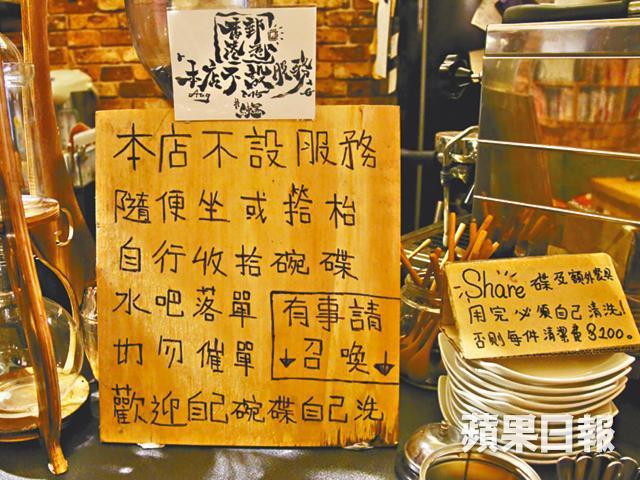 本店不設服務
Aug 2015
本店不設服務
隨便坐或撘枱
自行收拾碗碟
水吧落單
切勿催單
有事請
召喚
歡迎自己碗碟自己洗
Share 碟及額外餐具
用完必須自己清洗!
否則每件清潔費$200。
蘋果日報